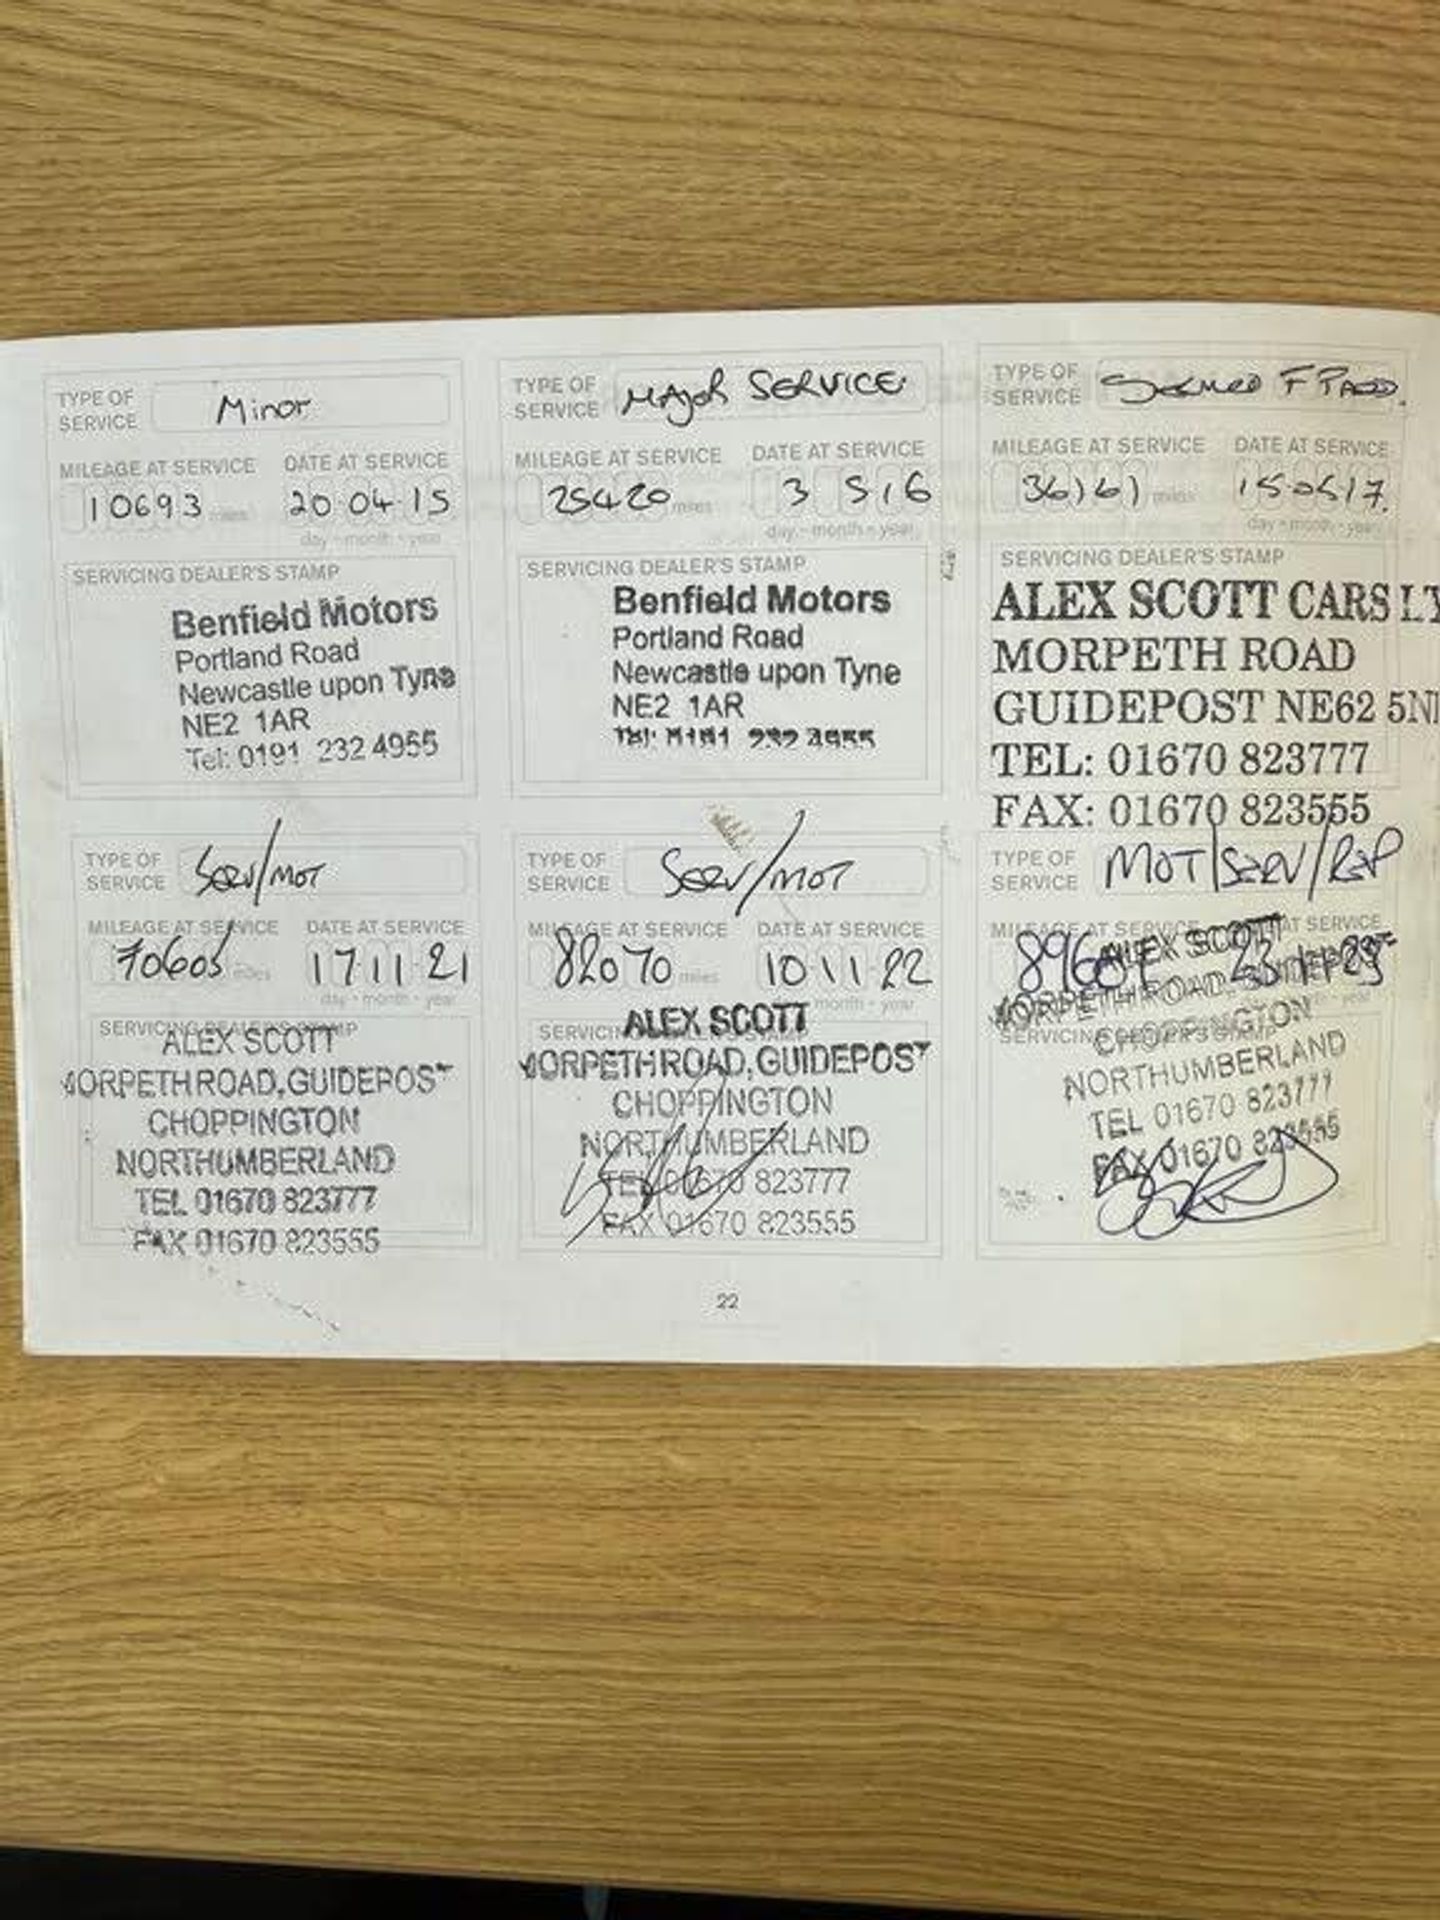 TYPE OF
SERVICE
Minor
MILEAGE AT SERVICE
DATE AT SERVICE
10693 miles
20·04·15
day - month - year
SERVICING DEALER'S STAMP
Benfield Motors
Portland Road
Newcastle upon Tyne
NE2 1AR
Tel: 0191 232 4955
TYPE OF
SERVICE
MAJOR SERVICE
MILEAGE AT SERVICE
DATE AT SERVICE
25420 miles
3 5 16
day - month - year
SERVICING DEALER'S STAMP
Benfield Motors
Portland Road
Newcastle upon Tyne
NE2 1AR
Tel: 0191 232 4955
TYPE OF
SERVICE
MILEAGE AT SERVICE
DATE AT SERVICE
36161 miles
15·05·17
day - month - year
SERVICING DEALER'S STAMP
ALEX SCOTT CARS
MORPETH ROAD
GUIDEPOST NE62
TEL: 01670 823777
FAX: 01670 823555
TYPE OF
SERVICE
SERV/MOT
MILEAGE AT SERVICE
DATE AT SERVICE
70605 miles
17·11·21
day - month - year
SERVICING DEALER'S STAMP
ALEX SCOTT
MORPETH ROAD, GUIDEPOST
CHOPPINGTON
NORTHUMBERLAND
TEL 01670 823777
FAX 01670 823555
TYPE OF
SERVICE
SERV/MOT
MILEAGE AT SERVICE
DATE AT SERVICE
82070 miles
10·11·22
month - year
SERVICING DEALER'S STAMP
ALEX SCOTT
MORPETH ROAD, GUIDEPOST
CHOPPINGTON
NORTHUMBERLAND
TEL 01670 823777
FAX 01670 823555
TYPE OF
SERVICE
MOT/SERV/REP
MILEAGE AT SERVICE
AT SERVICE
ALEX SCOTT
MORPETH ROAD, GUIDEPOST
SERVICING DEALER'S STAMP
CHOPPINGTON
NORTHUMBERLAND
TEL 01670 823777
FAX 01670 823555
22